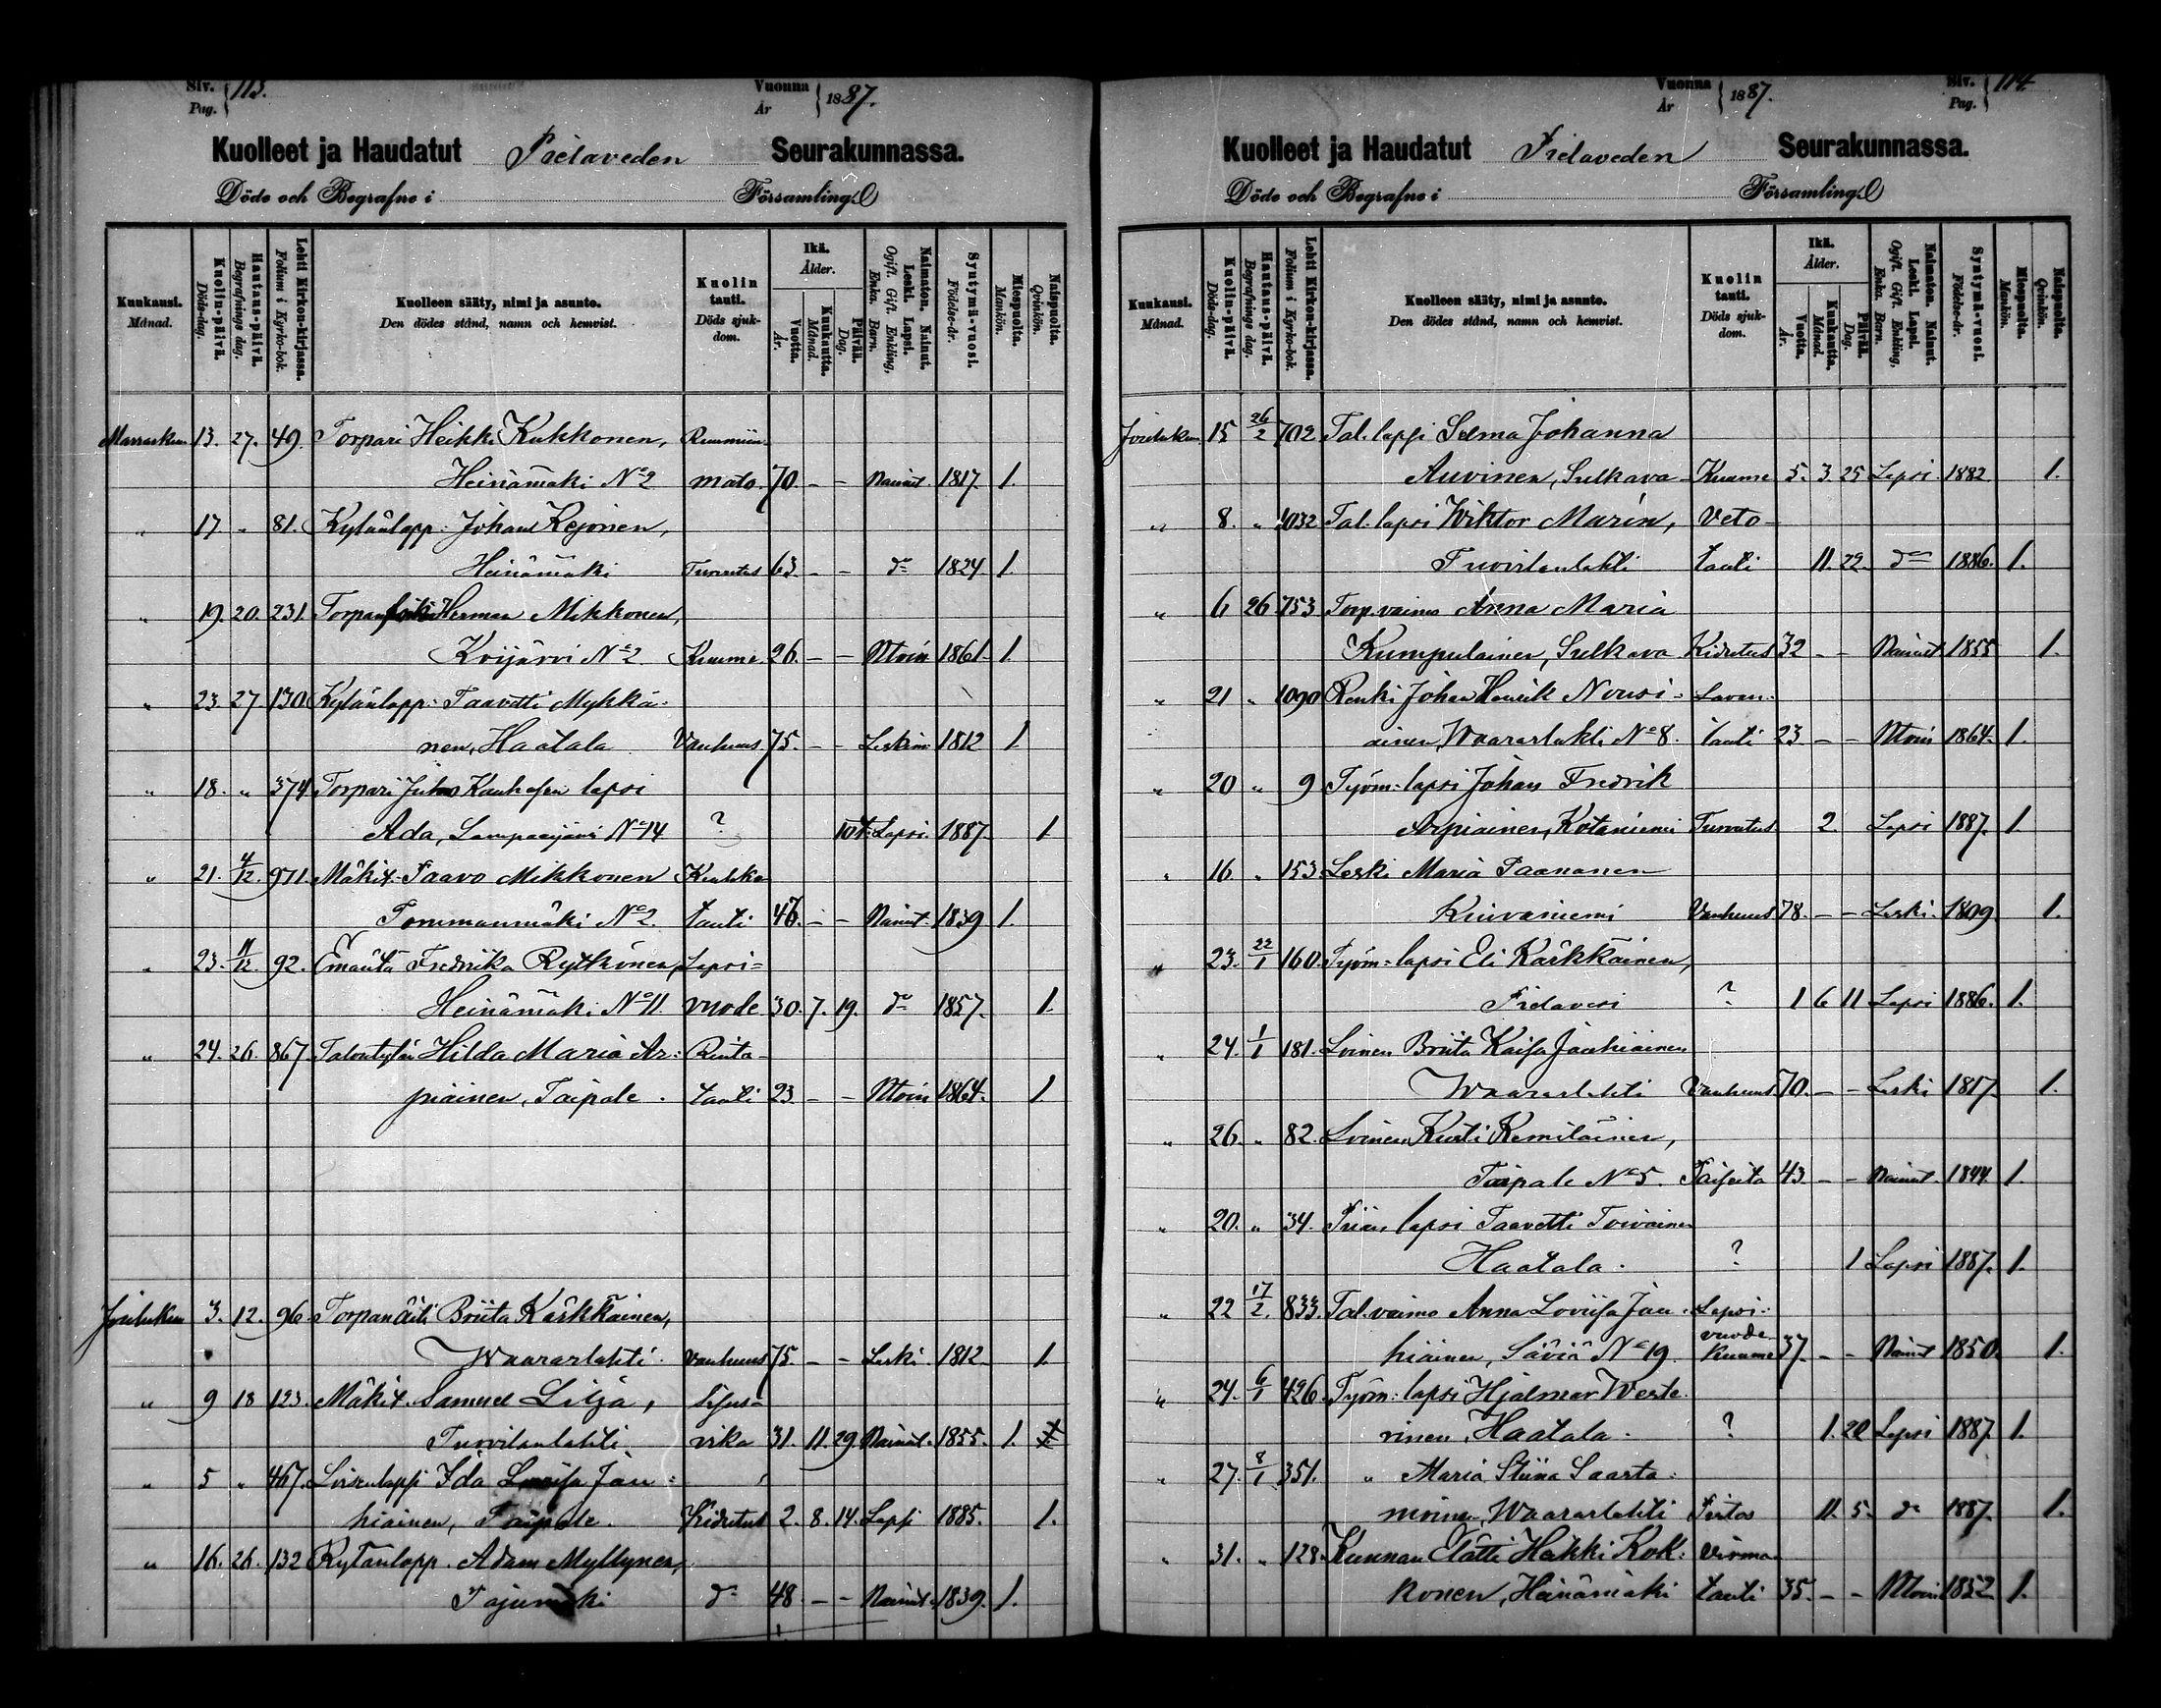 Siv. Pag. 113.
Vuonna År 1887.
Kuolleet ja Haudatut Pielaveden Seurakunnassa.
Döde och Begrafne i Församling.
Kuukausi. Månad.
Kuolin-päivä. Döds-dag.
Hautaus-päivä. Begrafnings dag.
Lehti Kirkon-kirjassa. Folium i Kyrko-bok.
Kuolleen sääty, nimi ja asunto. Den dödes stånd, namn och hemvist.
Kuolin tauti. Döds sjuk-dom.
Ikä. Ålder.
Vuotta. År.
Kuukautta. Månad.
Päivää. Dag.
Naimaton. Nainut. Leski. Lapsi. Ogift. Gift. Enkling, Enka. Barn.
Syntymä-vuosi. Födelse-år.
Miespuolta. Mankön.
Naispuolta. Qvinkön.
Marraskuu 13. 27. 49. Torpari Heikki Kukkonen, Ruumiin
Heinämäki No 2 mato. 70 - - Nainut 1817. 1.
" 17 " 81. Kylänlapp. Johan Kejonen,
Heinämäki Turvotus 63. - - do 1824. 1.
" 19. 20. 231. Herman Mikkonen,
Koijärvi No 2. Kuume. 26. - - Ntoin 1861. 1.
" 23 27 130 Kylänlapp. Taavetti Mykkä-
nen, Haatala Vanhuus 75. - - Leskim 1812 1.
" 18. " 374 Torpari Juho Kauhasen lapsi
Ada, No 14 ? 10 t. Lapsi. 1887. 1
" 21. 4/12. 971. Mäkit. Paavo Mikkonen Keuhko
Tommanmäki No 2. tauti 48. - - Nainut. 1839 1.
" 23. 11/12. 92. Emäntä Fredrika Rytkönen, Lapsi-
Heinämäki No 11. vuode 30. 7. 19. do 1857. 1.
" 24. 26. 867. Talontytär Hilda Maria Ar- Rinta-
piainen, Taipale. tauti 23 - - Ntoin 1864. 1.
Joulukuu 3. 12. 96. Torpan äiti Briita Kärkkäinen,
Waaraslahti. Vanhuus 75. - - Leski 1812. 1.
" 9 18 123. Mäkit. Samuel Lilja,
vika 31. 11. 29. Nainut. 1855. 1.
" 5 " 467. Loisenlapsi Ida Lovisa Jau-
hiainen, Taipale. Kidutus 2. 8. 14. Lapsi 1885. 1.
" 16. 26. 132 Kylänlapp. Adam Myllynen,
do 48. - - Nainut. 1839. 1.
Siv. Pag. 114.
Vuonna År 1887.
Kuolleet ja Haudatut Pielaveden Seurakunnassa.
Döde och Begrafne i Församling.
Kuukausi. Månad.
Kuolin-päivä. Döds-dag.
Hautaus-päivä. Begrafnings dag.
Lehti Kirkon-kirjassa. Folium i Kyrko-bok.
Kuolleen sääty, nimi ja asunto. Den dödes stånd, namn och hemvist.
Kuolin tauti. Döds sjuk-dom.
Ikä. Ålder.
Vuotta. År.
Kuukautta. Månad.
Päivää. Dag.
Naimaton. Nainut. Leski. Lapsi. Ogift. Gift. Enkling, Enka. Barn.
Syntymä-vuosi. Födelse-år.
Miespuolta. Mankön.
Naispuolta. Qvinkön.
Jouluku. 15 26/2 702. Tal. lapsi Selma Johanna
Auvinen, Sulkava Kuume 5. 3. 25 Lapsi. 1882. 1.
" 8. " 1032 Tal. lapsi Wiktor Marin, Veto-
tauti 11. 22. do 1886. 1.
" 6 26 753 Torp. vaimo Anna Maria
Kumpulainen, Sulkava Kidutus 32 - - Nainut 1855 1.
" 21 " 1090 Renki Johan Henrik Nousi- Lavan-
ainen, Waaraslahti No 8. tauti 23 - - Ntoin 1864. 1.
" 20 " 9 Työm. lapsi Johan Fredrik
Arpiainen, Kotaniemi Turvotus 2. Lapsi 1887. 1.
" 16. " 153 Leski Maria Paananen
Kuivaniemi Vanhuus 78. - - Leski. 1809. 1.
" 23. 22/1 160. Työm. lapsi Eli Kärkkäinen,
Pielavesi ? 1 6 11 Lapsi 1886. 1.
" 24. 1/1 181. Loinen Briita Kaisa Jauhiainen
Waaraslahti Vanhuus 70. - - Leski 1817. 1.
" 26. " 82. Loinen Kusti Kemiläinen,
Taipale No 5. Paiseita 43. - - Nainut. 1844. 1.
" 20. " 34. lapsi Taavetti Toivainen
Haatala. ? 1 Lapsi 1887. 1.
" 22 17/2. 833. Tal. vaimo Anna Lovisa Jau- Lapsi-
vuode
hiainen, Säviä No 19. kuume 37. - - Nainut 1850. 1.
" 24. 6/1 426. Työm. lapsi Hjalmar Weste-
rinen, Haatala. ? 1. 20 Lapsi 1887. 1.
" 27. 8/1 351. " Maria Stiina Saasta-
moinen, Waaraslahti 11. 5. do 1887. 1.
" 31. " 128. Kunnan Elätti Heikki Kok- Voima
konen, Heinämäki tauti 35. - - Ntoin 1852 1.